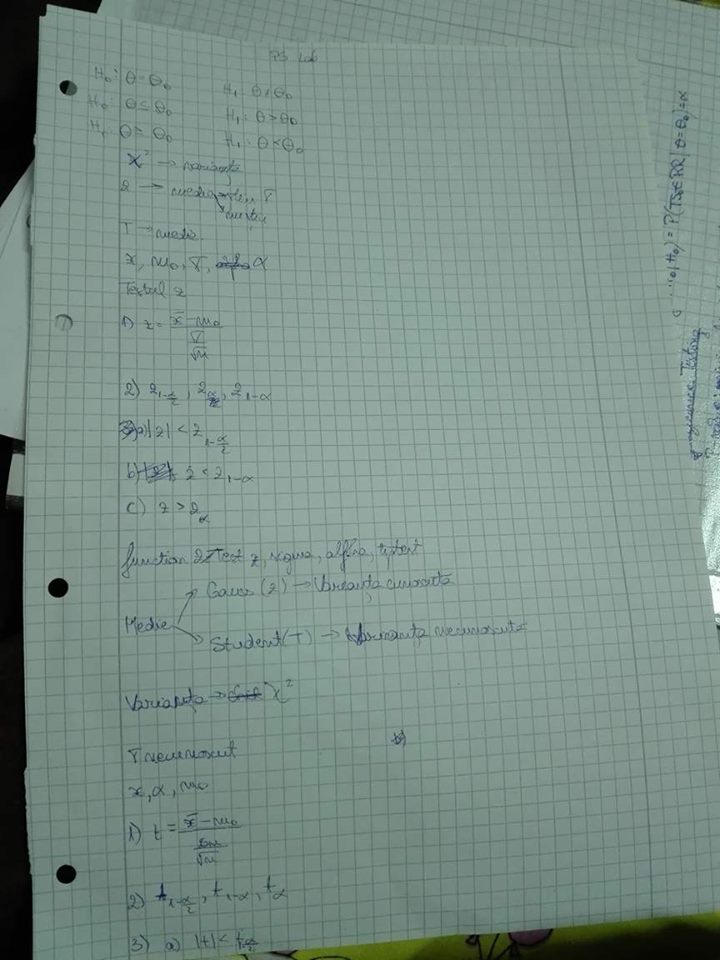 PS Lab
H₀: θ = θ₀    H₁: θ ≠ θ₀
H₀: θ ≤ θ₀    H₁: θ > θ₀
H₁: θ ≥ θ₀    H₁: θ < θ₀
χ² → varianta
z → media σ
T → media
x, m₀, σ, α
Testul z
1) z = (x̄ - m₀) / (σ/√n)
2) z₁₋α/₂, zα, z₁₋α
3) a) |z| < z₁₋α/₂
b) z < z₁₋α
c) z > zα
function zTest z, sigma, alfa, tiptest
Medie
Gauss (z) → Varianta cunoscuta
Student (T) → Varianta necunoscuta
Varianta → χ²
σ necunoscut
x, α, m₀
1) t = (x̄ - m₀) / (/√n)
2) t₁₋α/₂, t₁₋α, tα
3) a) |t| < t₁₋α/₂
(H₀) = P(TS₀ ∈ RR | θ = θ₀) = α
Testing